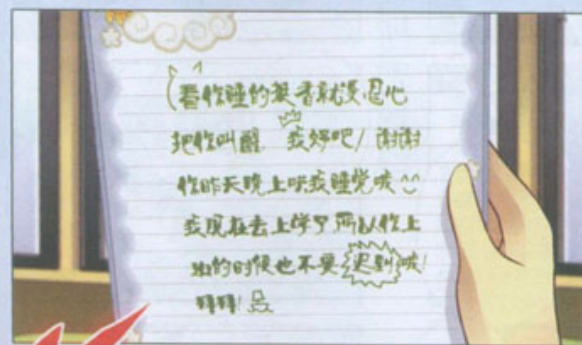 看你睡的挺香就没忍心
把你叫醒 我好吧/谢谢
你昨天晚上哄我睡觉哦
我现在去上学了所以你上
班的时候也不要迟到哦!
拜拜!